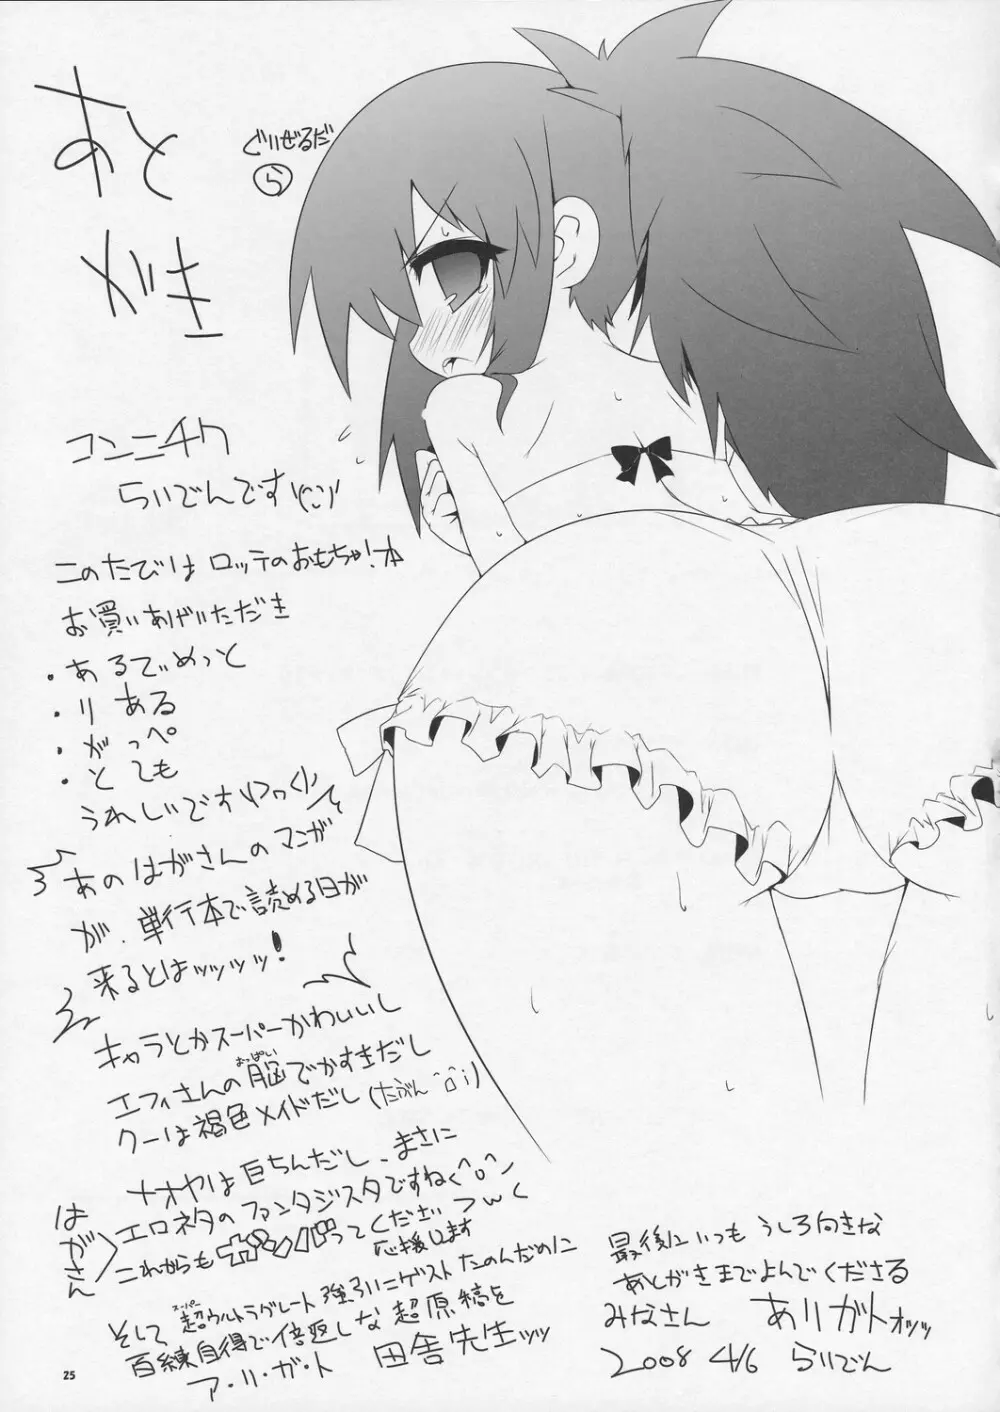 あとがき
ぐりぜるだ
ら
コンニチワ
らいでんです
このたびは ロッテのおもちゃ!本
お買いあげいただき
・あるでめっと
・りある
・がっぺ
・とても
うれしいです
あのはがさんのマンガ
が、単行本で読める日が
来るとはッッッッ!
キャラとかスーパーかわいいし
おっぱい
エフィさんの脳でかすぎだし
クーは褐色メイドだし(たぶん^ロ^;)
ナオヤは巨ちんだし、まさに
エロネタのファンタジスタですねく^o^ン
はがさん
これからもガンバってください
応援します
スーパー
そして超ウルトラグレート強引にゲストたのんだのに
百練自得で倍返しな超原稿を
ア・リ・ガ・ト 田舎先生ッッ
最後にいつもうしろ向きな
あとがきまでよんでくださる
みなさん ありガトオッッ
2008 4/6 らいでん
25